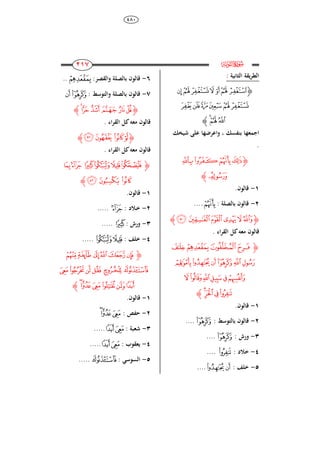 ٤٨٠
سورة التوبة
٢١٧
الطريقة الثانية :
﴿ ٱسۡتَغۡفِرۡ لَهُمۡ أَوۡ لَا تَسۡتَغۡفِرۡ لَهُمۡ إِن
تَسۡتَغۡفِرۡ لَهُمۡ سَبۡعِينَ مَرَّةٗ فَلَن يَغۡفِرَ
ٱللَّهُ لَهُمۡۚ ﴾
اجمعها بنفسك ، واعرضها على شيخك
.
﴿ ذَٰلِكَ بِأَنَّهُمۡ كَفَرُواْ بِٱللَّهِ
وَرَسُولِهِۦۗ ﴾
١- قالون.
٢- قالون بالصلة : بِأَنَّهُمۡ ....
﴿ وَٱللَّهُ لَا يَهۡدِي ٱلۡقَوۡمَ ٱلۡفَٰسِقِينَ ٨٠ ﴾
قالون معه كل القراء .
﴿ فَرِحَ ٱلۡمُخَلَّفُونَ بِمَقۡعَدِهِمۡ خِلَٰفَ
رَسُولِ ٱللَّهِ وَكَرِهُوٓاْ أَن يُجَٰهِدُواْ بِأَمۡوَٰلِهِمۡ
وَأَنفُسِهِمۡ فِي سَبِيلِ ٱللَّهِ وَقَالُواْ لَا
تَنفِرُواْ فِي ٱلۡحَرِّۗ ﴾
١- قالون.
٢- قالون بالتوسط : وَكَرِهُوٓاْ ....
٣- ورش : وَكَرِهُوٓاْ ....
٤- خلاد : تَنفِرُواْ ....
٥- خلف : أَن يُجَٰهِدُواْ ....
٦- قالون بالصلة والقصر: بِمَقۡعَدِهِمۡ ..
٧- قالون بالصلة والتوسط : وَكَرِهُوٓاْ أَن
﴿ قُلۡ نَارُ جَهَنَّمَ أَشَدُّ حَرّٗاۚ ﴾
قالون معه كل القراء .
﴿ لَّوۡ كَانُواْ يَفۡقَهُونَ ٨١ ﴾
قالون معه كل القراء .
﴿ فَلۡيَضۡحَكُواْ قَلِيلٗا وَلۡيَبۡكُواْ كَثِيرٗا جَزَآءَۢ بِمَا
كَانُواْ يَكۡسِبُونَ ٨٢ ﴾
١- قالون.
٢- خلاد : جَزَآءَۢ .....
٣- ورش : كَثِيرٗا .....
٤- خلف : قَلِيلٗا وَلۡيَبۡكُواْ .....
﴿ فَإِن رَّجَعَكَ ٱللَّهُ إِلَىٰ طَآئِفَةٖ مِّنۡهُمۡ
فَٱسۡتَـٔۡذَنُوكَ لِلۡخُرُوجِ فَقُل لَّن تَخۡرُجُواْ مَعِيَ
أَبَدٗا وَلَن تُقَٰتِلُواْ مَعِيَ عَدُوًّاۖ ﴾
١- قالون.
٢- حفص : مَعِيَ عَدُوًّاۖ
٣- شعبة : مَعِيَ أَبَدٗا .....
٤- يعقوب : مَعِيَ أَبَدٗا .....
٥- السوسي : فَٱسۡتَـٔۡذَنُوكَ .....